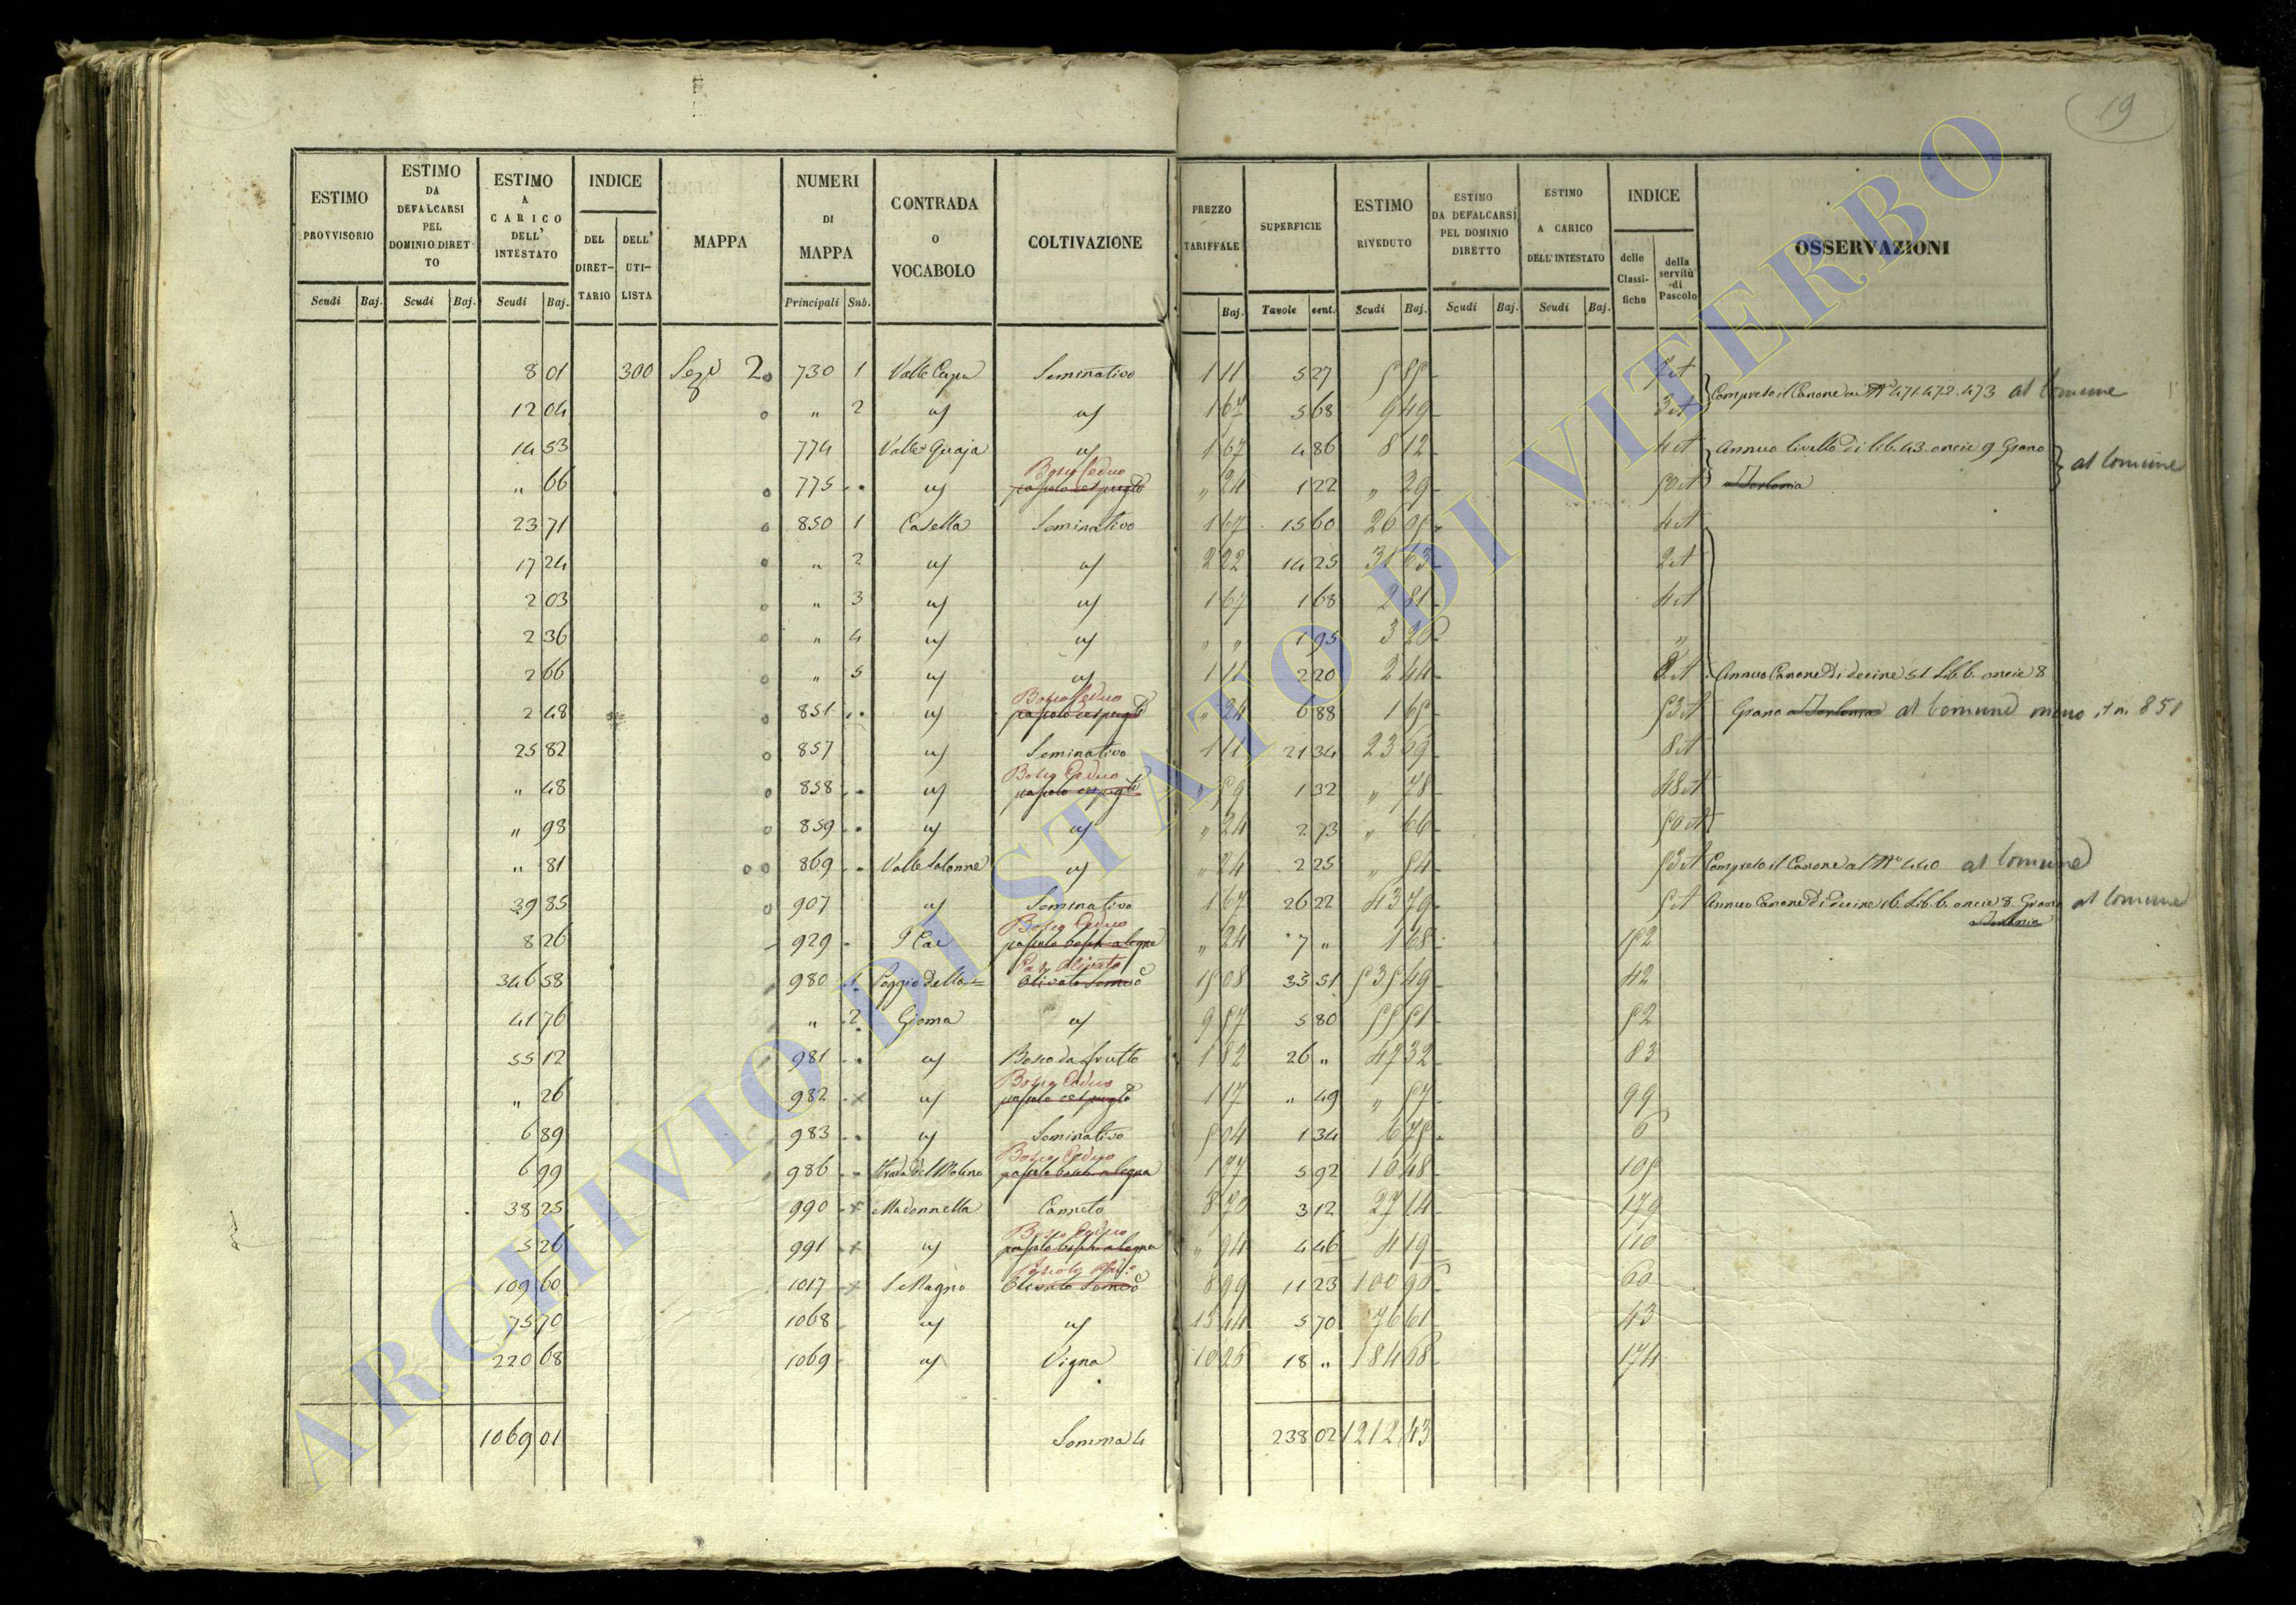 19
ESTIMO PROVVISORIO Scudi Baj.
ESTIMO DA DEFALCARSI PEL DOMINIO DIRETTO Scudi Baj.
ESTIMO A CARICO DELL' INTESTATO Scudi Baj.
INDICE DEL DIRETTARIO DELL' UTILISTA
MAPPA
NUMERI DI MAPPA Principali Sub.
CONTRADA O VOCABOLO
COLTIVAZIONE
PREZZO TARIFFALE Baj.
SUPERFICIE Tavole cent.
ESTIMO RIVEDUTO Scudi Baj.
ESTIMO DA DEFALCARSI PEL DOMINIO DIRETTO Scudi Baj.
ESTIMO A CARICO DELL'INTESTATO Scudi Baj.
INDICE delle Classifiche della servitù di Pascolo
OSSERVAZIONI
8 01 300 Sez. 2 730 1 Valle Cupa Seminativo 1 11 5 27 5 85 Compreso il Canone ai N. 471.472.473 al Comune
12 04 " 2 " " 1 67 5 68 9 49 3 A
14 53 774 Valle Quaja " 1 67 4 86 8 12 4 A Annuo livello di lib. 43. oncie 9 Grano al Comune
" 66 775 " Bosco Ceduo pascolo cespugl. " 24 1 22 " 29 50 A
23 71 850 1 Casella Seminativo 1 67 15 60 26 05 4 A
17 24 " 2 " " 2 22 14 25 31 63 2 A
2 03 " 3 " " 1 67 1 68 2 81 4 A
2 36 " 4 " " " " 1 95 3 26 "
2 66 " 5 " " 1 11 2 20 2 44 8 A Annuo Canone di decine 51 Lib. 6. oncie 8
2 48 851 " Bosco Ceduo pascolo cespugl. " 24 6 88 1 65 53 A Grano al Comune meno il n. 851
25 82 857 " Seminativo 1 11 21 34 23 69 8 A
" 48 858 " Bosco Ceduo pascolo cespugl. " 59 1 32 " 78 48 A
" 98 859 " " " 24 2 73 " 66 50 A
" 81 869 Valle Salonne " " 24 2 25 " 54 53 A Compreso il Canone al N. 440 al Comune
39 85 907 " Seminativo 1 67 26 22 43 79 5 A Annuo Canone di decine 16. Lib. 6. oncie 8. Grano al Comune
8 26 929 Bosco Ceduo " 24 7 " 1 68 152
346 58 980 1 Poggio della Olivato 15 08 35 51 535 49 42
41 76 " 2 Gioma " 9 57 5 80 55 51 52
55 12 981 " Bosco da frutto 1 82 26 " 47 32 83
" 26 982 " Bosco Ceduo pascolo cespugl. 1 17 " 49 " 57 99
6 89 983 " Seminativo 5 04 1 34 6 75 6
6 99 986 Strada del Molino Bosco Ceduo 1 77 5 92 10 48 105
38 25 990 Madonnella Canneto 8 70 3 12 27 14 179
5 26 991 " Bosco Ceduo " 94 4 46 4 19 110
109 60 1017 S. Magno 8 99 11 23 100 96 60
75 70 1068 " " 13 44 5 70 76 61 43
220 68 1069 " Vigna 10 26 18 " 184 68 174
1069 01 Somma 4 238 02 1212 43
ARCHIVIO DI STATO DI VITERBO